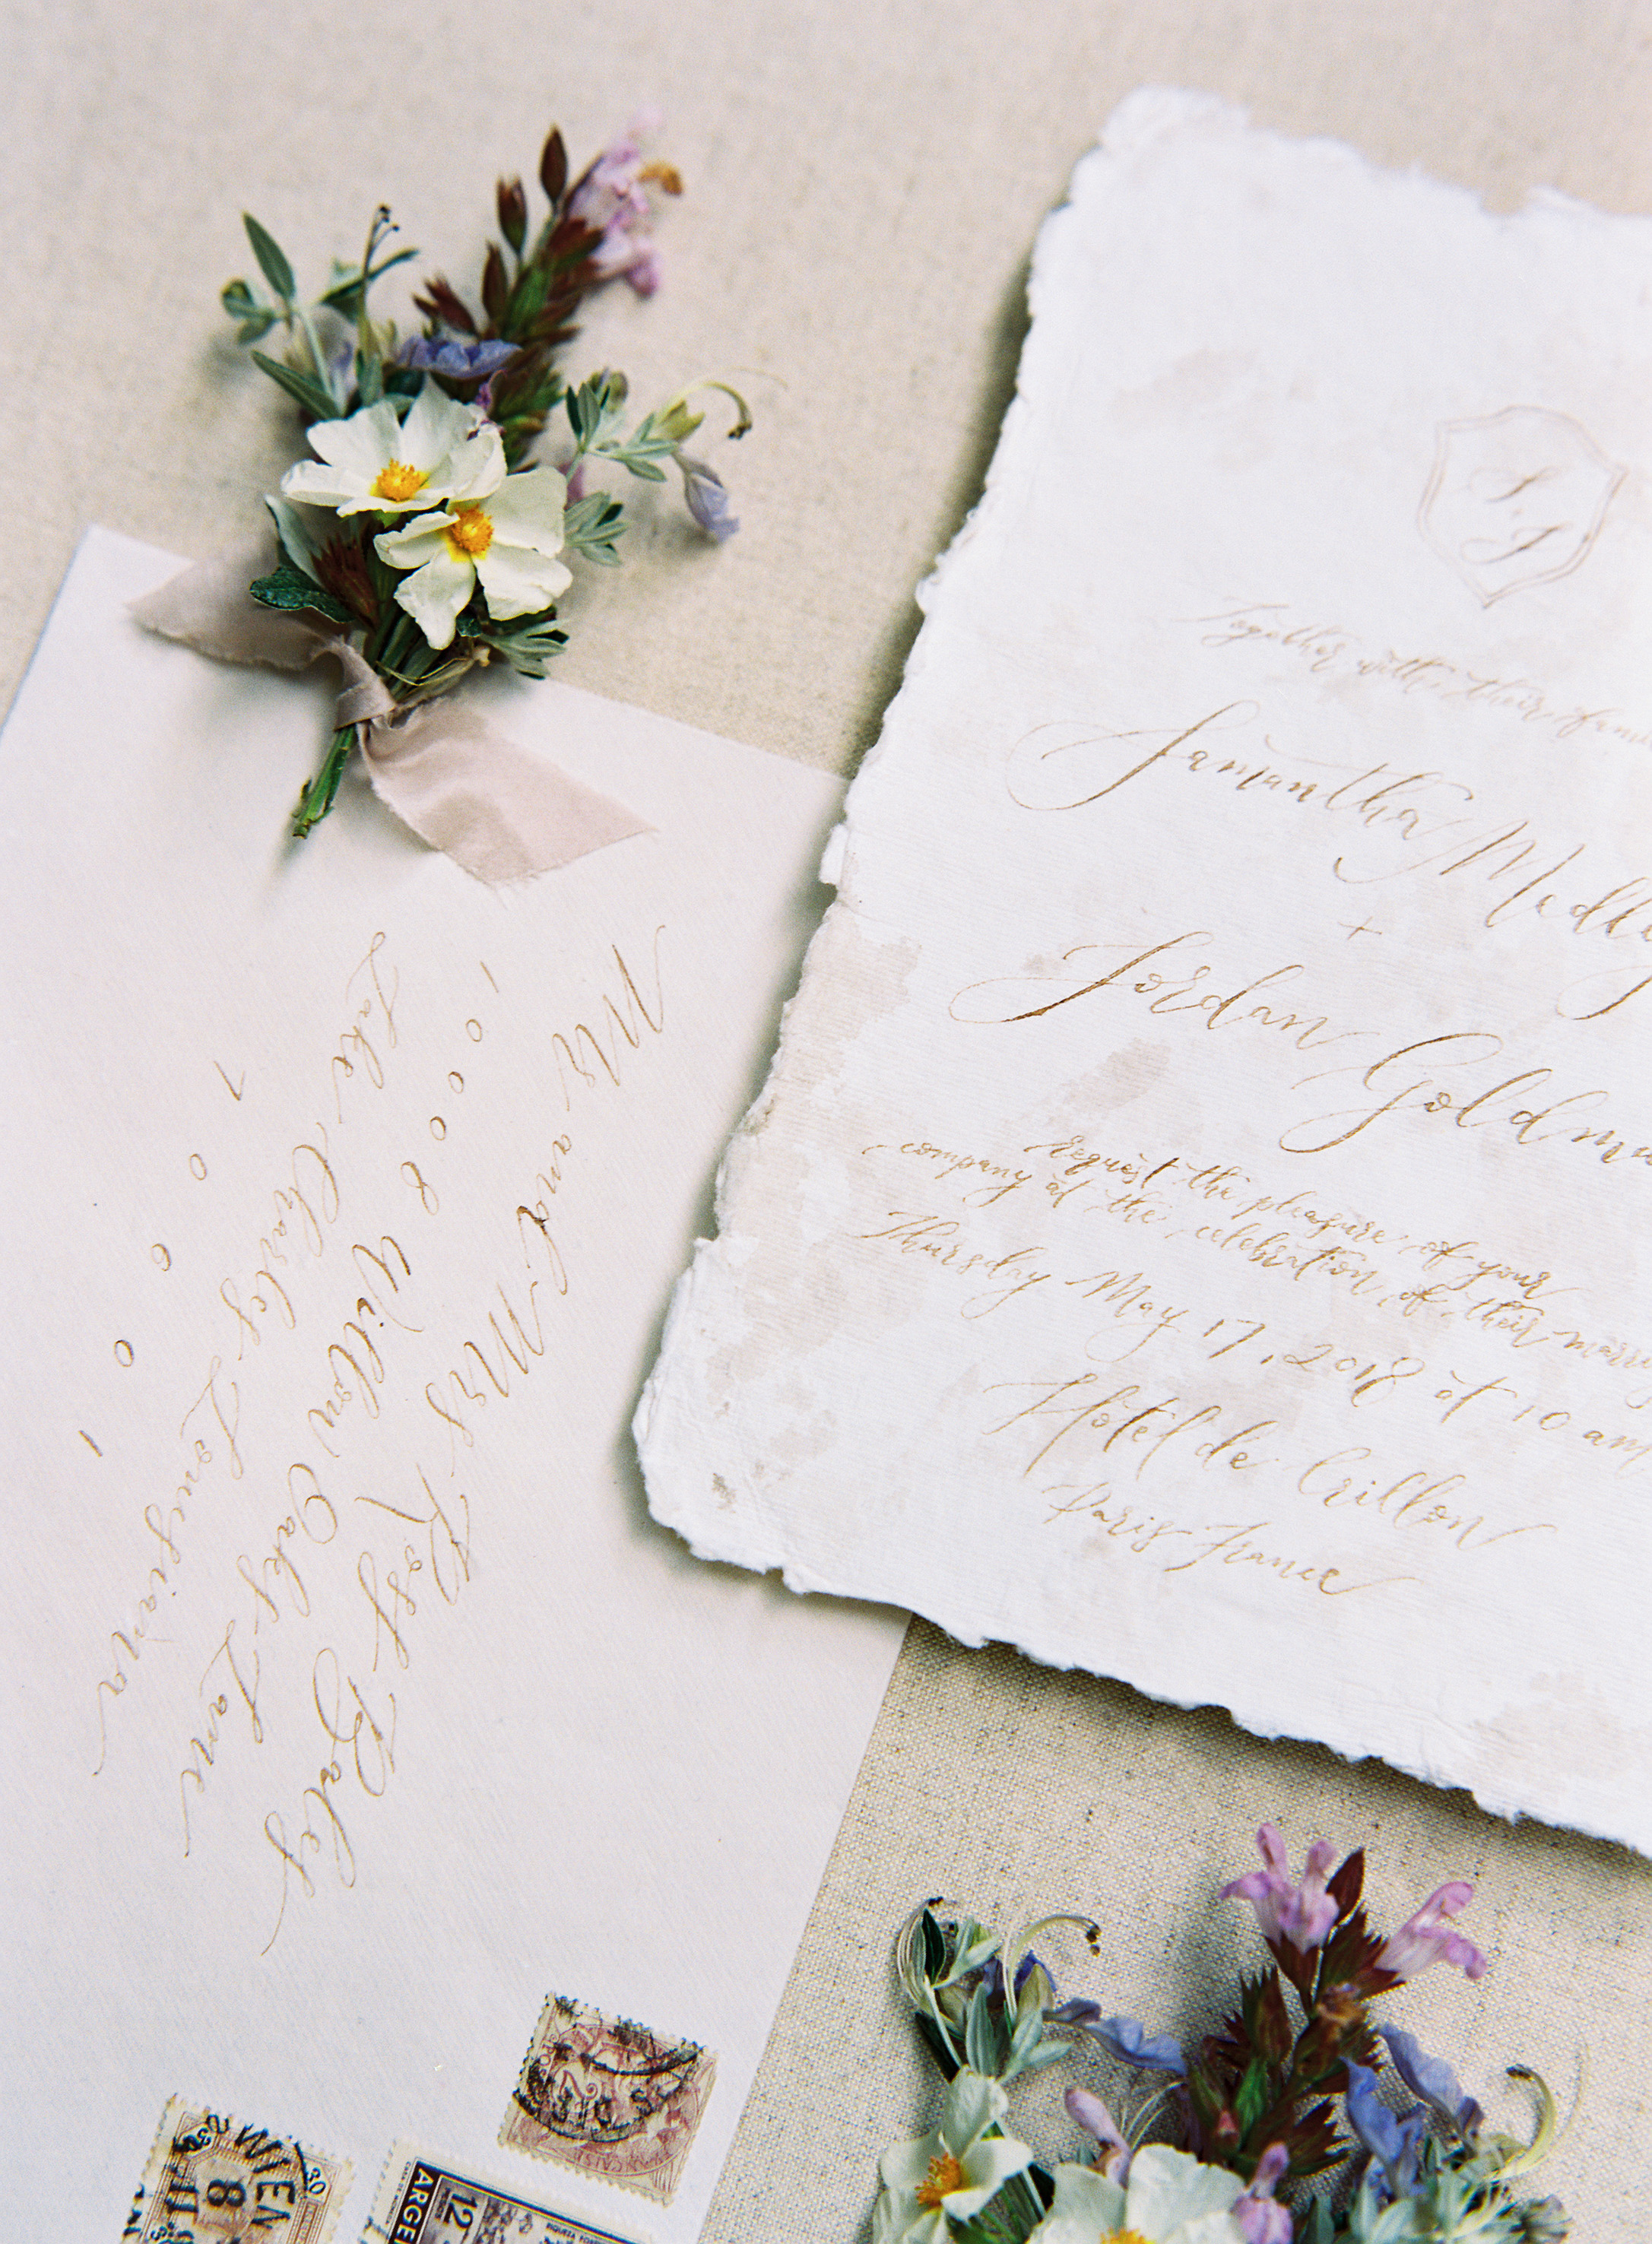 S
J
Together with their
Samantha
+
Jordan
request the pleasure of your
company at the celebration of their
Thursday May 17, 2018 at 10 am
Hôtel de Crillon
Paris France
Mr and Mrs Ross Baley
1008 Willow Oaks Lane
Lake Charles Louisiana
1 0 0 6 0 1
WIEN
8
30
30
12
ARGE